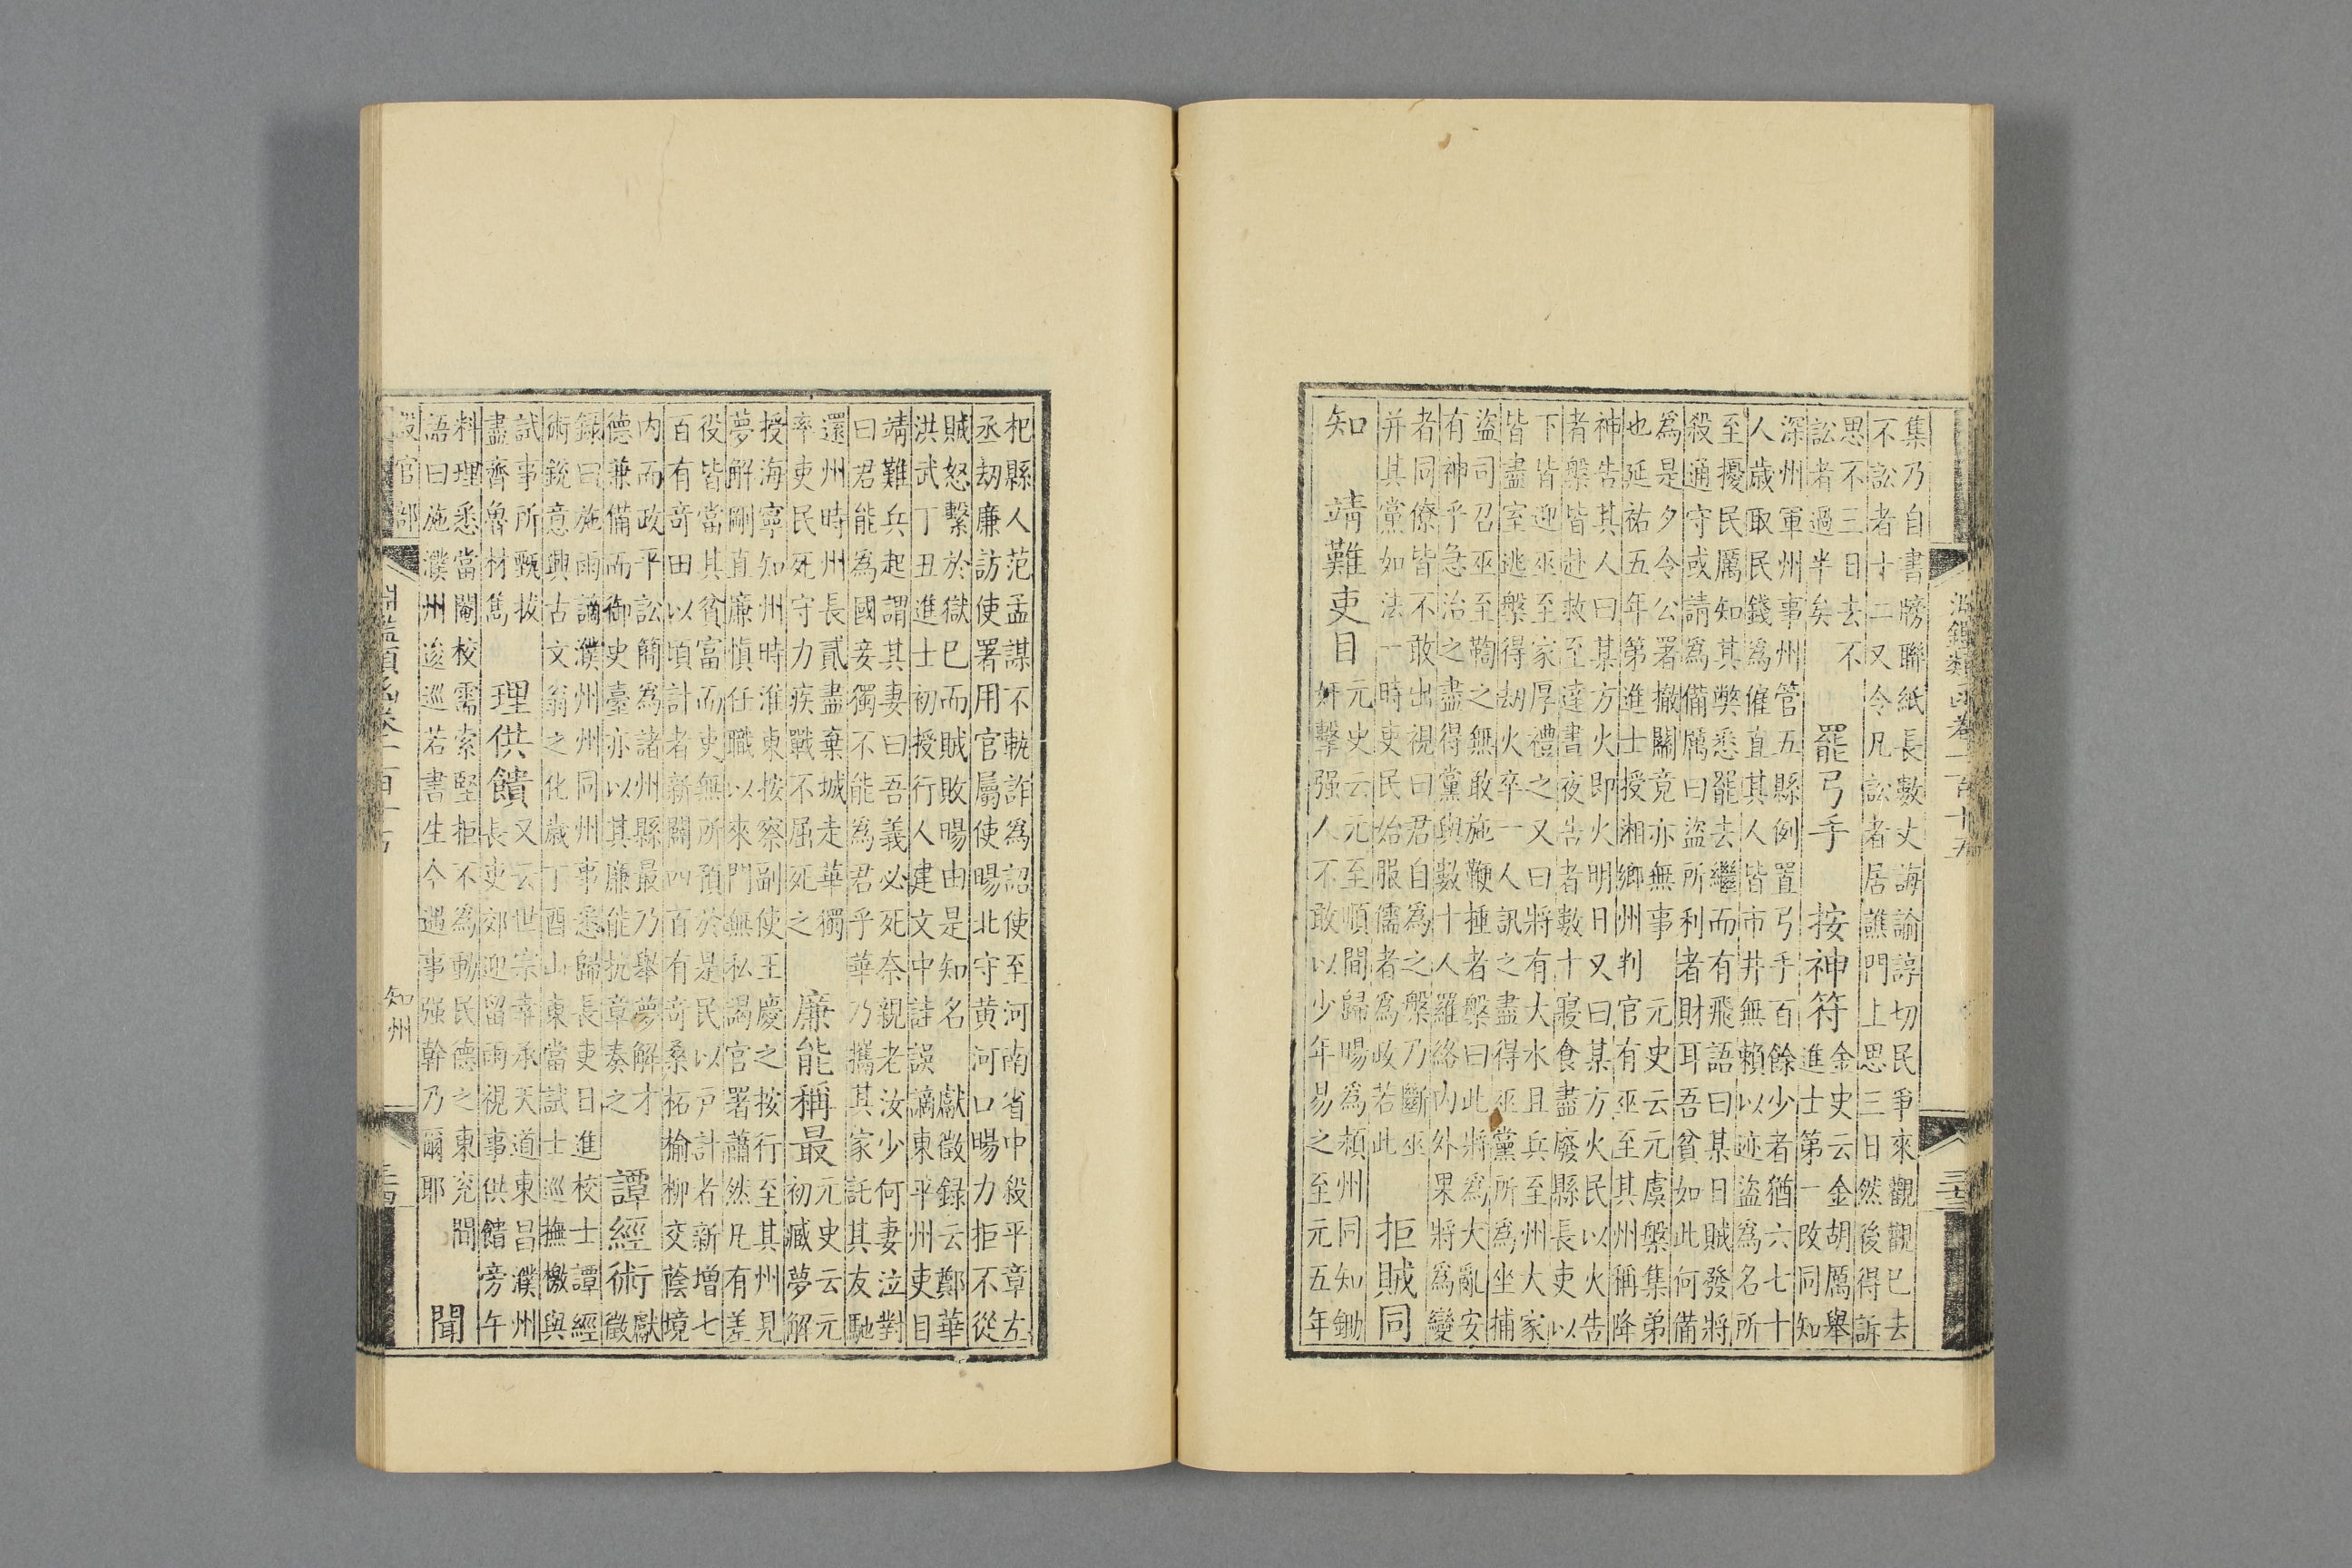 淵鑑類函卷一百十五
三十三
集乃自書牓聯紙長數丈誨諭諄切民爭來觀觀已去
不訟者十二又令凡訟者居譙門上思三日然後得訴
思不三日去不
訟者過半矣
罷弓手　按神符
金史云金胡厲舉
進士第一改同知
深州軍州事州管五縣例置弓手百餘少者猶六七十
人歲取民錢爲催直其人皆市井無賴以迹盜爲名所
至擾民厲知其弊悉罷去繼而有飛語曰某日賊發將
殺通守或請爲備厲曰盜所利者財耳吾貧如此何備
爲是夕令公署撤關竟亦無事　元史云元虞槃集弟
也延祐五年第進士授湘鄉州判官有巫至其州稱降
神告其人曰某方火即火明日又曰某方火民以火告
者槃皆赴救至達書夜告者數十寢食盡廢縣長吏以
下皆迎巫至家厚禮之又曰將有大水且兵至州大家
皆盡室逃槃得刼火卒一人訊之盡得巫黨所爲坐捕
盜司召巫至鞫之無敢施鞭捶者槃曰此將爲大亂安
有神乎急治之盡得黨與數十人羅絡內外果將爲變
者同僚皆不敢出視曰君自爲之槃乃斷巫
并其黨如法一時吏民始服儒者爲政若此
拒賊同
知　靖難吏目
元史云元至順間歸暘爲潁州同知鋤
奸擊强人不敢以少年易之至元五年
杞縣人范孟謀不軌詐爲詔使至河南省中殺平章左
丞刼廉訪使署用官屬使暘北守黄河口暘力拒不從
賊怒繫於獄已而賊敗暘由是知名　獻徵録云鄭華
洪武丁丑進士初授行人建文中詿誤謫東平州吏目
靖難兵起謂其妻曰吾義必死奈親老汝少何妻泣對
曰君能爲國妾獨不能爲君乎華乃攜其家託其友馳
還州時州長貳盡棄城走華獨
率吏民死守力疾戰不屈死之
廉能稱最
元史云元
初臧夢解
授海寧知州時淮東按察副使王慶之按行至其州見
夢解剛直廉慎任職以來門無私謁官署蕭然凡有差
役皆當其貧富而吏無所預於是民以戸計者新增七
百有奇田以頃計者新闢四百有奇桑柘榆柳交蔭境
內而政平訟簡爲諸州縣最乃舉夢解才
德兼備而御史臺亦以其廉能抗章奏之
譚經術
獻
徵
録曰施雨謫濮州州同州事悉歸長吏日進校士譚經
術銳意興古文翁之化歲丁酉山東當試士巡撫檄與
試事所甄拔
盡齊魯材雋
理供饋
又云世宗幸承天道東昌濮州
長吏郊迎留雨視事供饋旁午
料理悉當閹校需索堅拒不爲動民德之東兗間
語曰施濮州逡巡若書生今遇事强幹乃爾耶
聞
設官部
淵鑑類函卷一百十五
知州
三十四